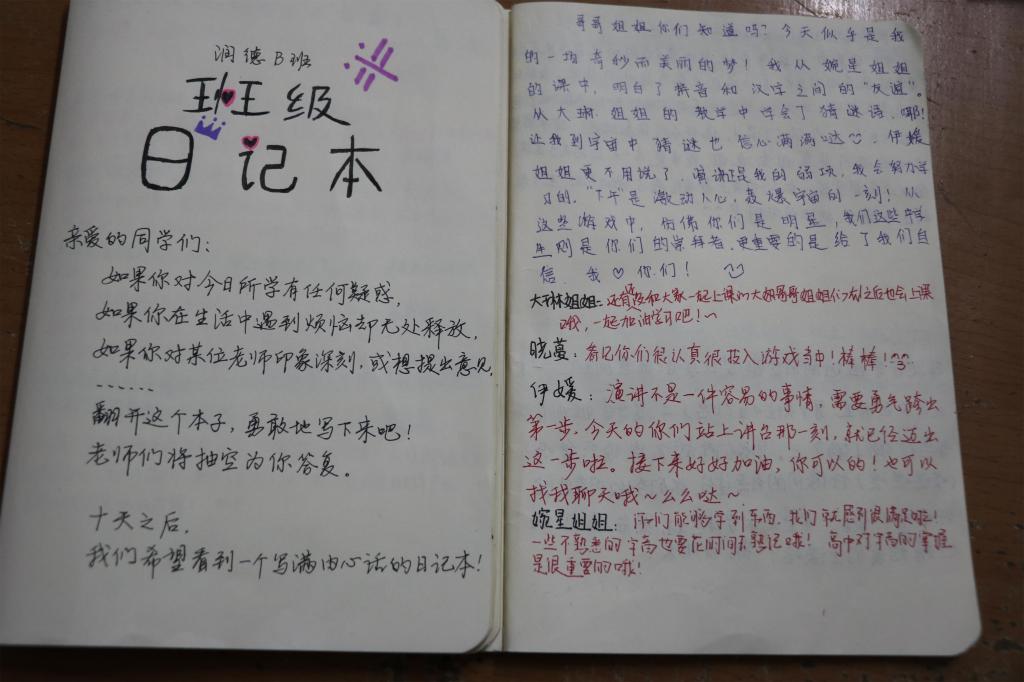 润德B班
班级
日记本
亲爱的同学们：
如果你对今日所学有任何疑惑，
如果你在生活中遇到烦恼却无处释放，
如果你对某位老师印象深刻，或想提出意见，
......
翻开这个本子，勇敢地写下来吧！
老师们将抽空为你答复。
十天之后，
我们希望看到一个写满内心话的日记本！
哥哥姐姐你们知道吗？今天似乎是我
的一场奇妙而美丽的梦！我从婉星姐姐
的课中，明白了拼音和汉字之间的“友谊”。
从大琳姐姐的教学中学会了猜谜诗，嘟！
让我到宇宙中猜谜也信心满满哒 伊媛
姐姐更不用说了，演讲正是我的弱项，我会努力学
习的。“下午”是激动人心，轰爆宇宙的一刻！从
这些游戏中，仿佛你们是明星，我们这些学
生则是你们的崇拜者，更重要的是给了我们自
信，我♡你们！
大琳姐姐：还有和大家一起上课的大姐哥哥姐姐们之后也会上课
哦，一起加油学习吧！~
晓蔓：看见你们很认真很投入游戏当中！棒棒！
伊媛：演讲不是一件容易的事情，需要勇气跨出
第一步，今天的你们站上讲台那一刻，就已经迈出
这一步啦。接下来好好加油，你可以的！也可以
找我聊天哦~么么哒~
婉星姐姐：你们能够学到东西，我们就感到很满足啦！
一些不熟悉的字高也要花时间去熟记哦！高中对字高的掌握
是很重要的哦！